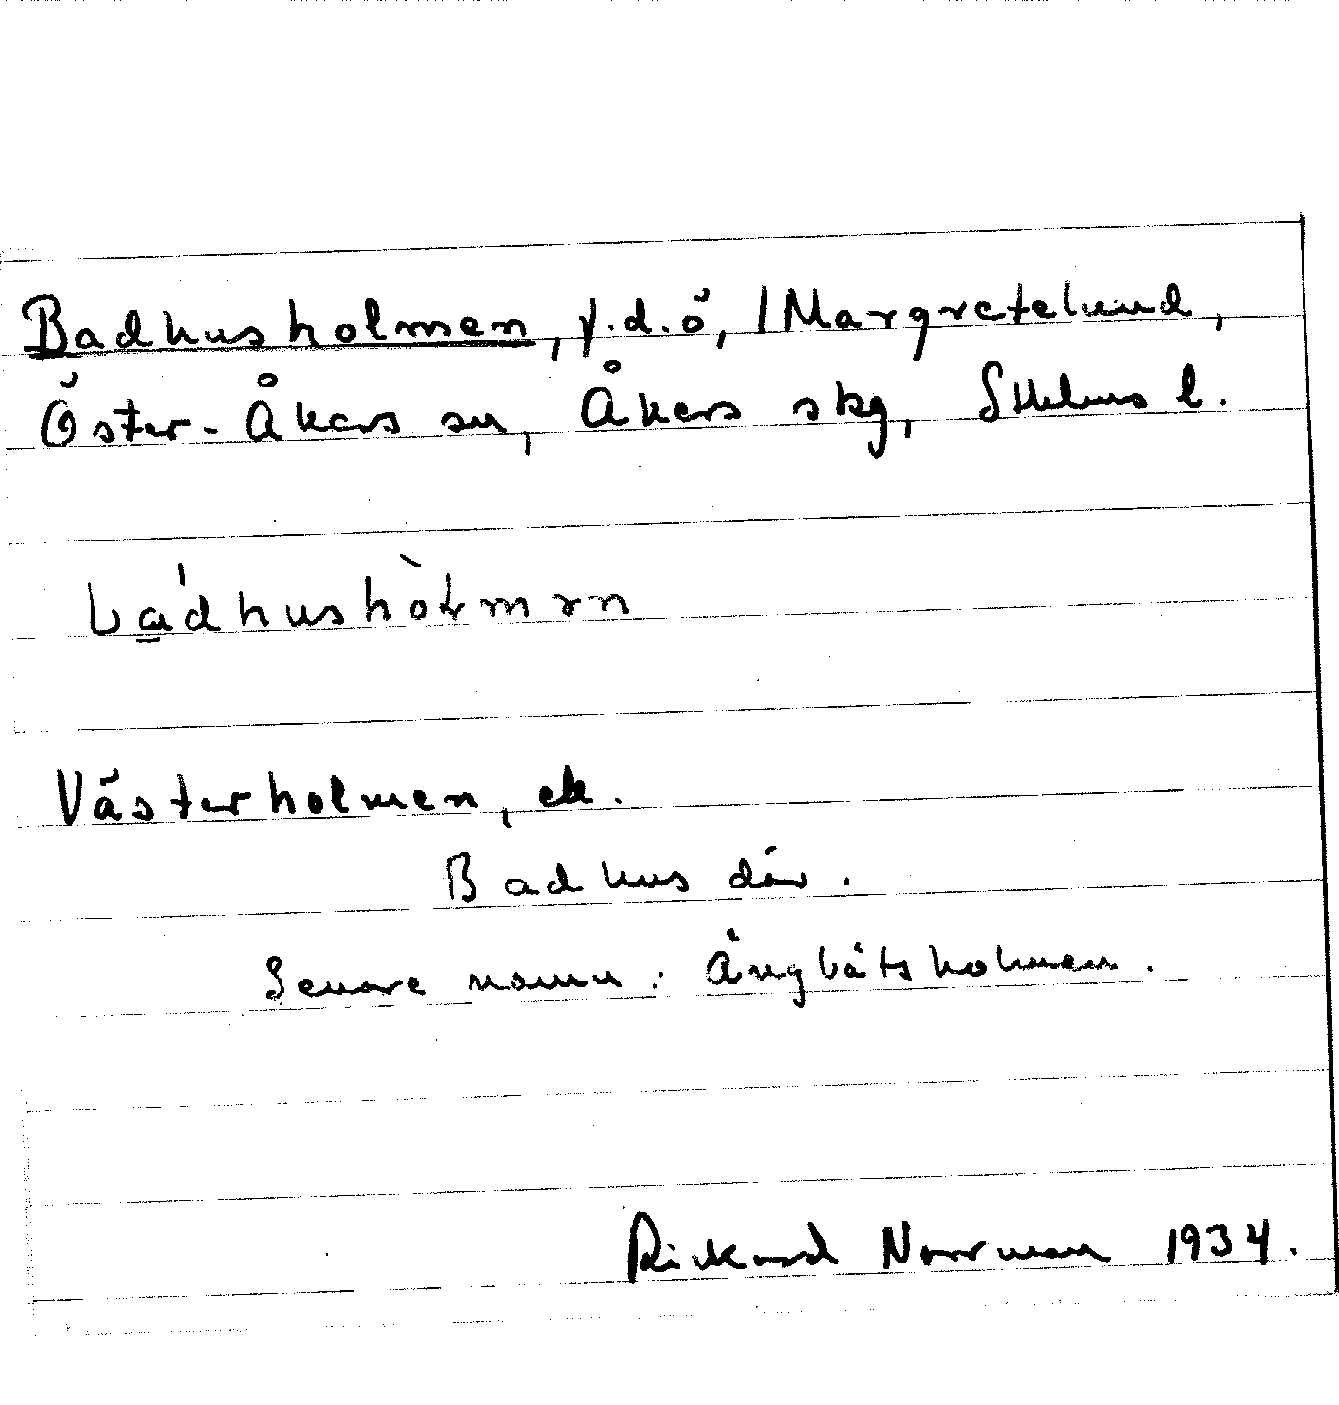 Badhusholmen, f.d. ö, /Margretelund,
Öster-Åkers sn, Åkers skg, Sthlms l.
bádhushòłmən
Västerholmen, ek.
Badhus där.
Senare namn: Ångbåtsholmen.
Rickard Norrman 1934.